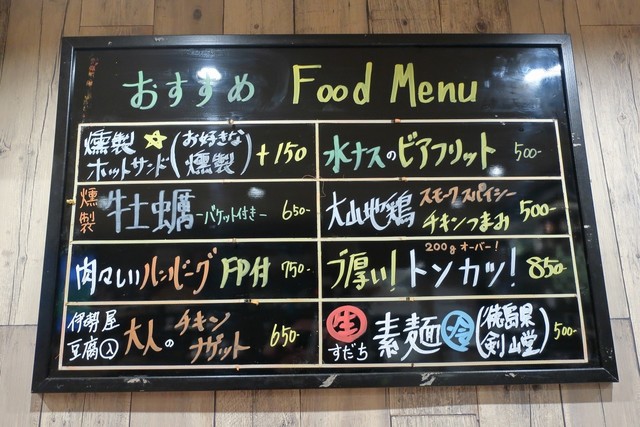 おすすめ Food Menu
燻製☆(お好きな
ホットサンド 燻製)+150
水ナスのビアフリット 500-
燻製 牡蠣 -バケット付き- 650-
大山地鶏 スモークスパイシー
チキンつまみ 500-
肉々しいハンバーグ FP付 750-
200gオーバー!
ブ厚い!トンカツ! 850-
伊勢屋 大人の チキン
豆腐入 ナゲット 650-
生 素麺 冷 (徳島県
すだち 剣山堂) 500-